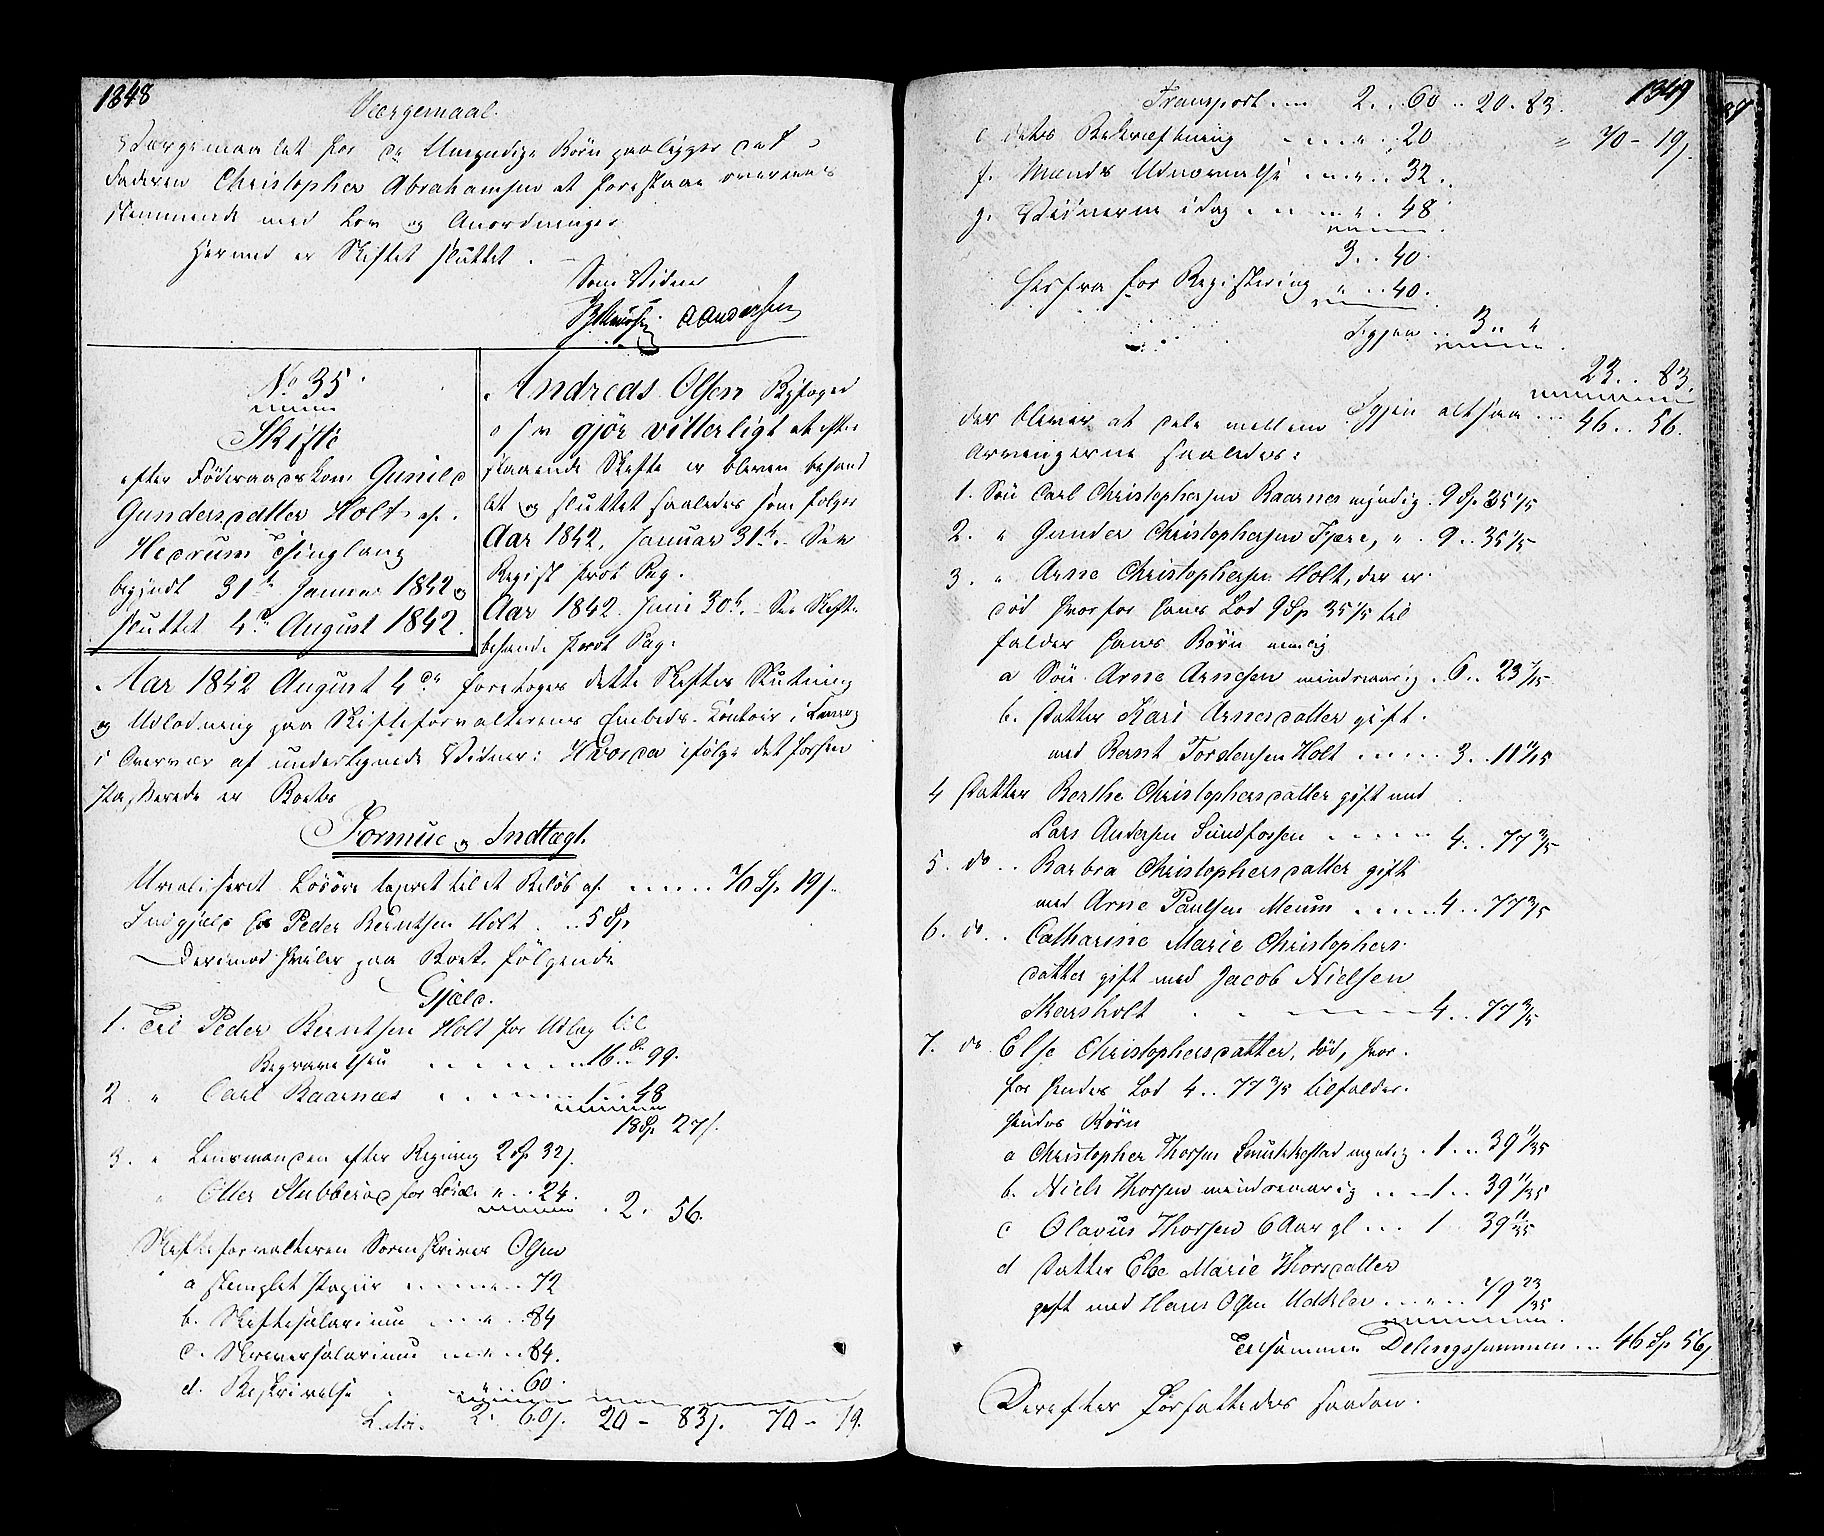 1348
Værgemaal.
Værgemaalet for de Umyndige Børn paaligger det
Faderen Christopher Abrahamsen at forestaae overeens
stemmende med Lov og Anordninger
Hermed er Skiftet sluttet.
Som Vidner
A Andersen
No 35
Skifte
efter Föderaadskone Gunild
Gundersdatter Holt af
Hedrum Thinglaug
begyndt 31te Januar 1842 og
sluttet 4de August 1842.
Andreas Olsen Byfoged
gjör vitterligt at efter
staaende Skifte er bleven behand
let og sluttet saaledes som følger
Aar 1842, Januar 31te. See
Regist prot Pag.
Aar 1842 Juni 30te. See Skifte
behand. prot Pag:
Aar 1842 August 4de foretoges dette Skiftes Slutning
og Udlodning paa Skifteforvalterens Embeds-Contoir i Laurvig
i Overvær af undertegnede Vidner: Hvorda ifölge det forhen
passerede er Boets
Formue og Indtægt.
Urealiseret Lösöre taxeret til et Belöb af ..... 70 Sp 19 s.
Indgjæld hos Peder Berntsen Holt .. 5 Sp
Derimod hviler paa Boet fölgende
Gjæld.
1. Til Peder Berntsen Holt for Udlæg til
Begravelsen ..... 16 .. 99.
2 " Carl Baarnæs ..... 1 .. 48
18 Sp 27 s.
3. " Lensmanden efter Regning 2 Sp 32 s.
" Otter Stubberød for " .. 24.
2. 56.
Skifteforvalteren Sorenskriver Olsen
a stemplet Papiir ..... " .. 72
b. Skiftesalarium ..... " .. 84
c. Skriversalarium ..... " .. 84.
d. Beskrivelse .. 60.
Latr. 2. 60 s. 20 - 83 s. 70 - 19.
1349
Transport .... 2 .. 60 .. 20. 83.
e dets Bekræftning .... " .. 20 " 70 - 19 s.
f. Mænds Udnævnelse ... " .. 32.
g. Vidnerne i dag ... " .. 48
3 .. 40.
Herfra for Registering " .. 40.
Igjen .. 3 .. "
23 .. 83.
Igjen altsaa ... 46 .. 56.
der bliver at dele mellem
Arvingerne saaledes:
1. Søn Carl Christophersen Baarnes myndig. 9 Sp 35 1/5
2. " Gunder Christophersen Fjære, " . 9 .. 35 1/5
3. " Arne Christophersen Holt, der er
död hvorfor hans Lod 9 Sp 35 1/5 til
falder hans Börn nemlig
a Søn Arne Arnesen mindreaarig . 6 .. 23 7/15
b. Datter Kari Arnesdatter gift
med Bernt Torstensen Holt ..... 3 .. 11 11/15
4 Datter Berthe Christophersdatter gift med
Lars Andersen Sundfossen ..... 4 .. 77 3/5
5. do .. Barbra Christophersdatter gift
med Arne Paulsen Meum ..... 4 .. 77 3/5
6. do .. Catharine Marie Christophers
datter gift med Jacob Nielsen
Skarsholt ..... 4 .. 77 3/5
7. do Else Christophersdatter, död, hvor
for hendes Lod 4 .. 77 3/5 tilfalder
hendes Börn
a Christopher Thorsen myndig . 1 .. 39 11/35
b. Niels Thorsen mindreaarig ... 1 .. 39 11/35
c Olavus Thorsen 6 Aar gl ... 1 39 11/35
d Datter Else Marie Thorsdatter
gift med Hans Olsen Udkler ... " .. 79 23/35
Tilsammen Delingssummen ... 46 Sp 56 s
Derefter forfattedes saadan.